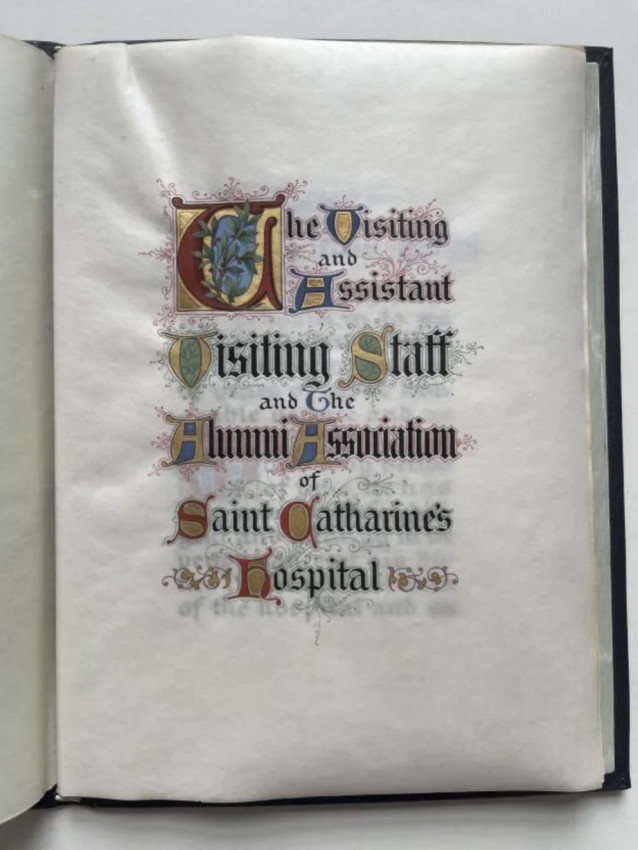 The Visiting
and
Assistant
Visiting Staff
and The
Alumni Association
of
Saint Catharine's
Hospital
of the hospital and